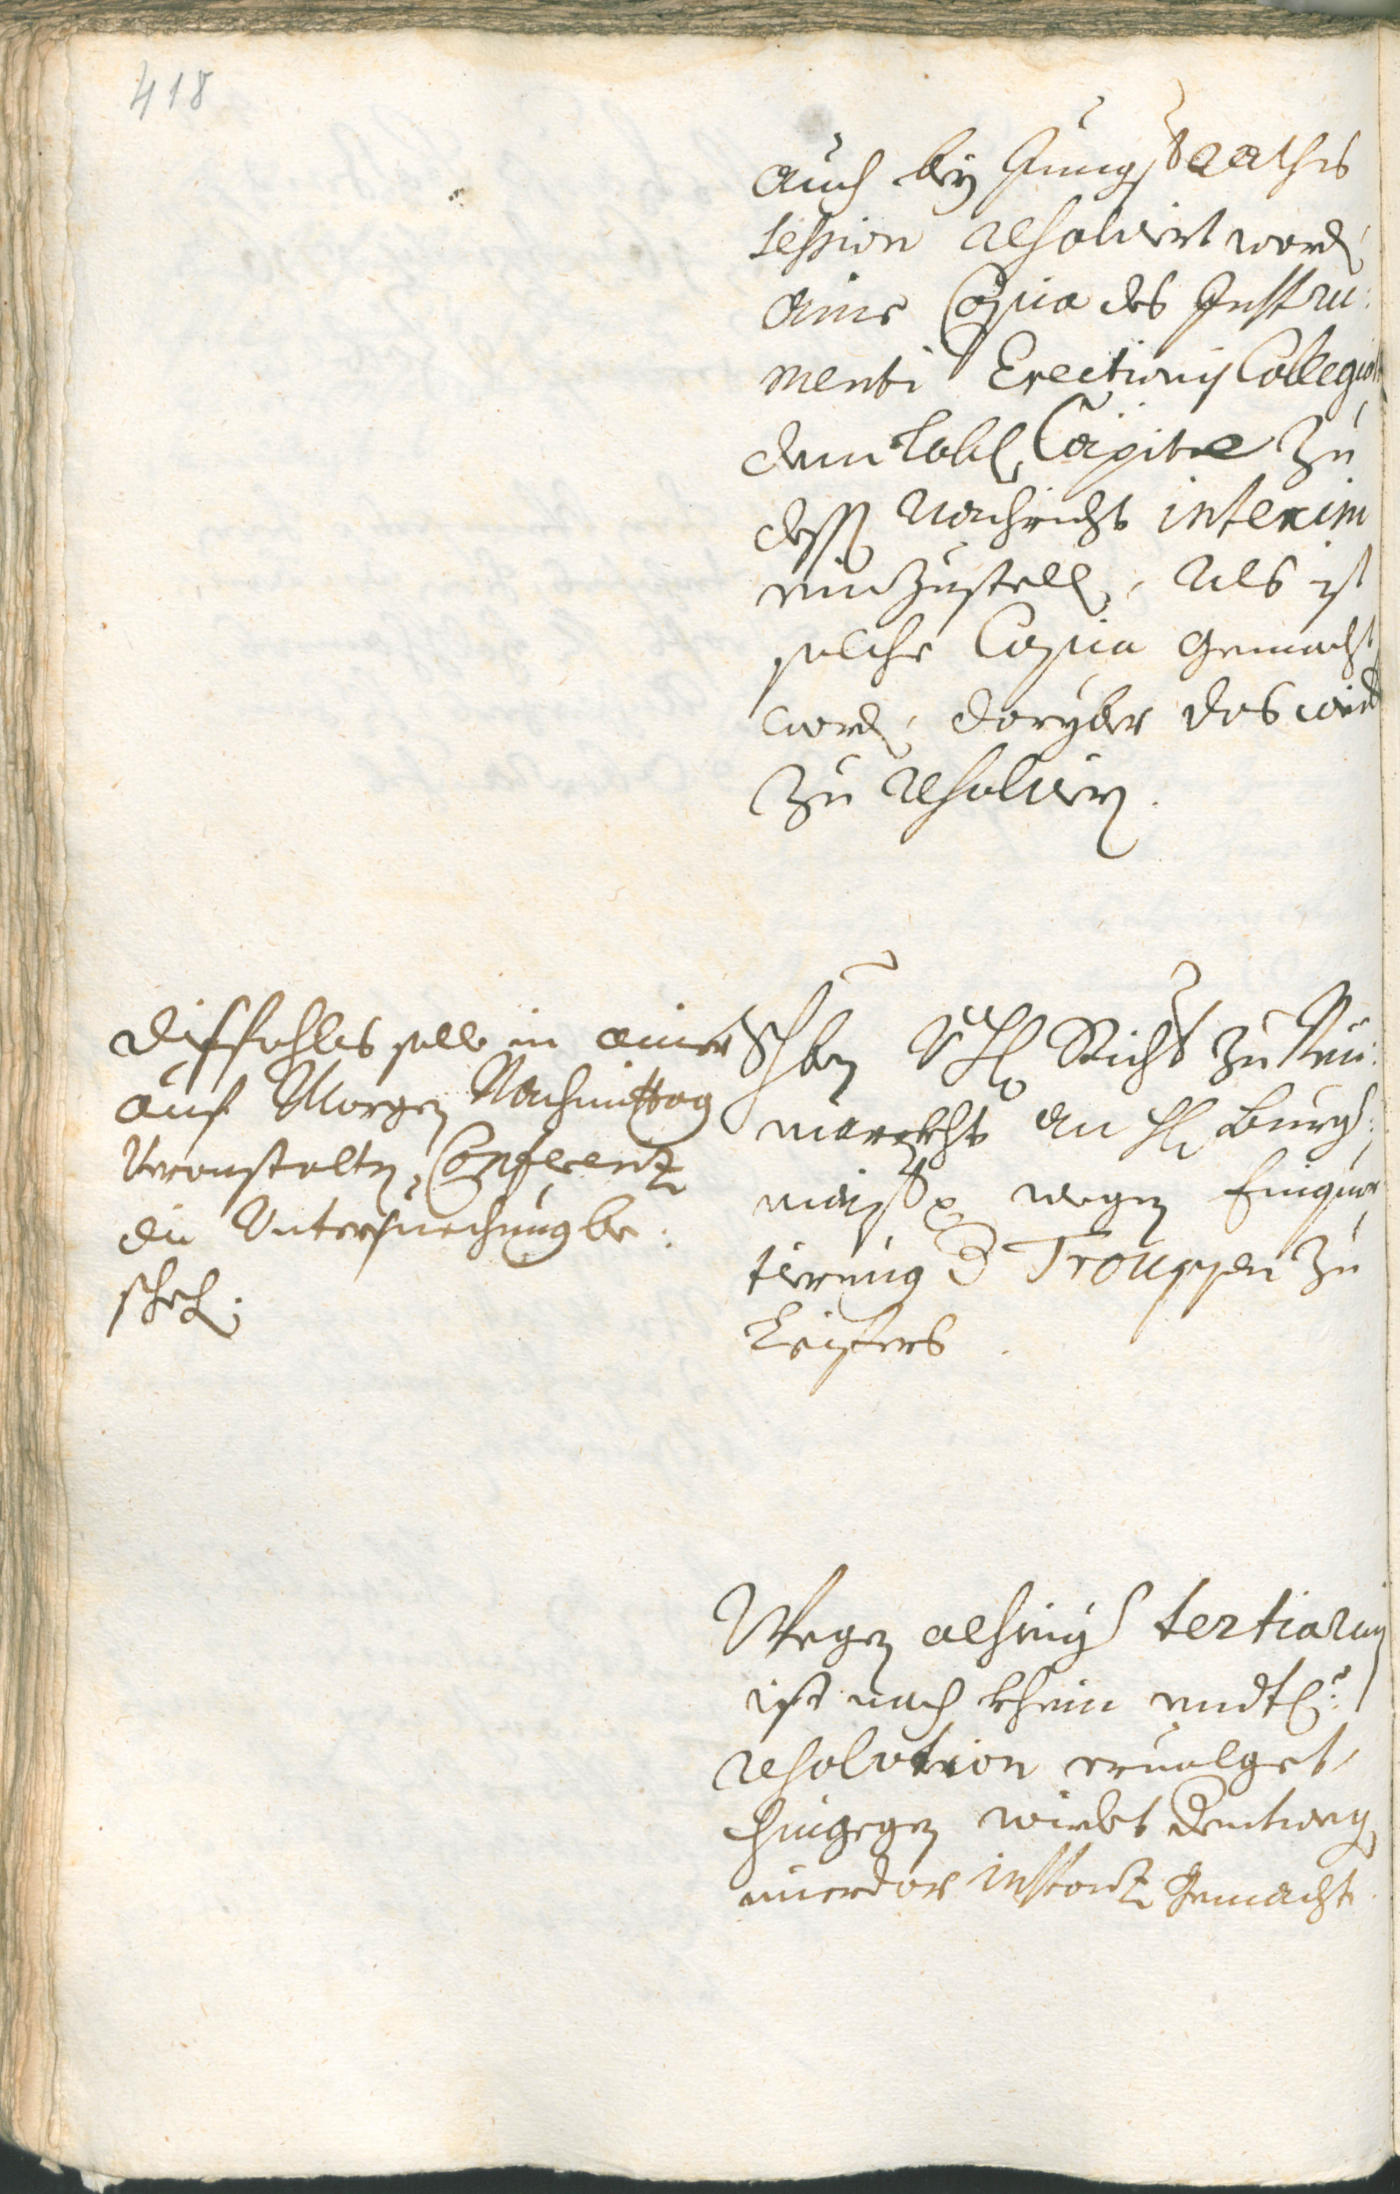 418
auch bey Jüngst Raths
session resolviert word
aine Copia des Instru:
menti Erectionis Collegiat
dem Lobl. Capitel zu
dess Nachricht interim
einzustell, als ist
solche Copia gemacht
word, darüber das weit
zu resolviern.
Dissfahls solle in ainer
auf Morgen Nachmittag
Veranstalten Conferenz
die Untersuechung be:
scheh:
Schben Hl Richt zu Neü:
marckht an H Burg:
maist wegen Einquar
tierung d Trouppen zu
Leifers.
Wegen tertiarin
ist noch khein endtl:
resolution ervolget,
hingegen wirdet dentweg
instanz gemacht.